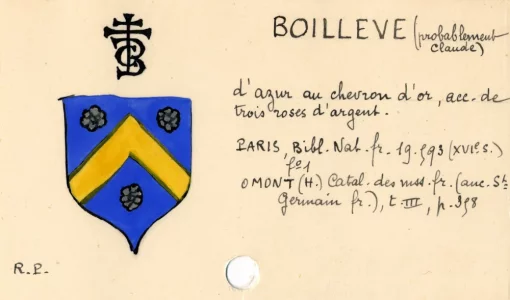 BOILLEVE (probablement
Claude)
d'azur au chevron d'or, acc. de
trois roses d'argent.
PARIS, Bibl. Nat. fr. 19.593 (XVIe s.)
fo 1
OMONT (H.) Catal. des mss. fr. (anc. St
Germain fr.), t. III, p. 398
R.P.